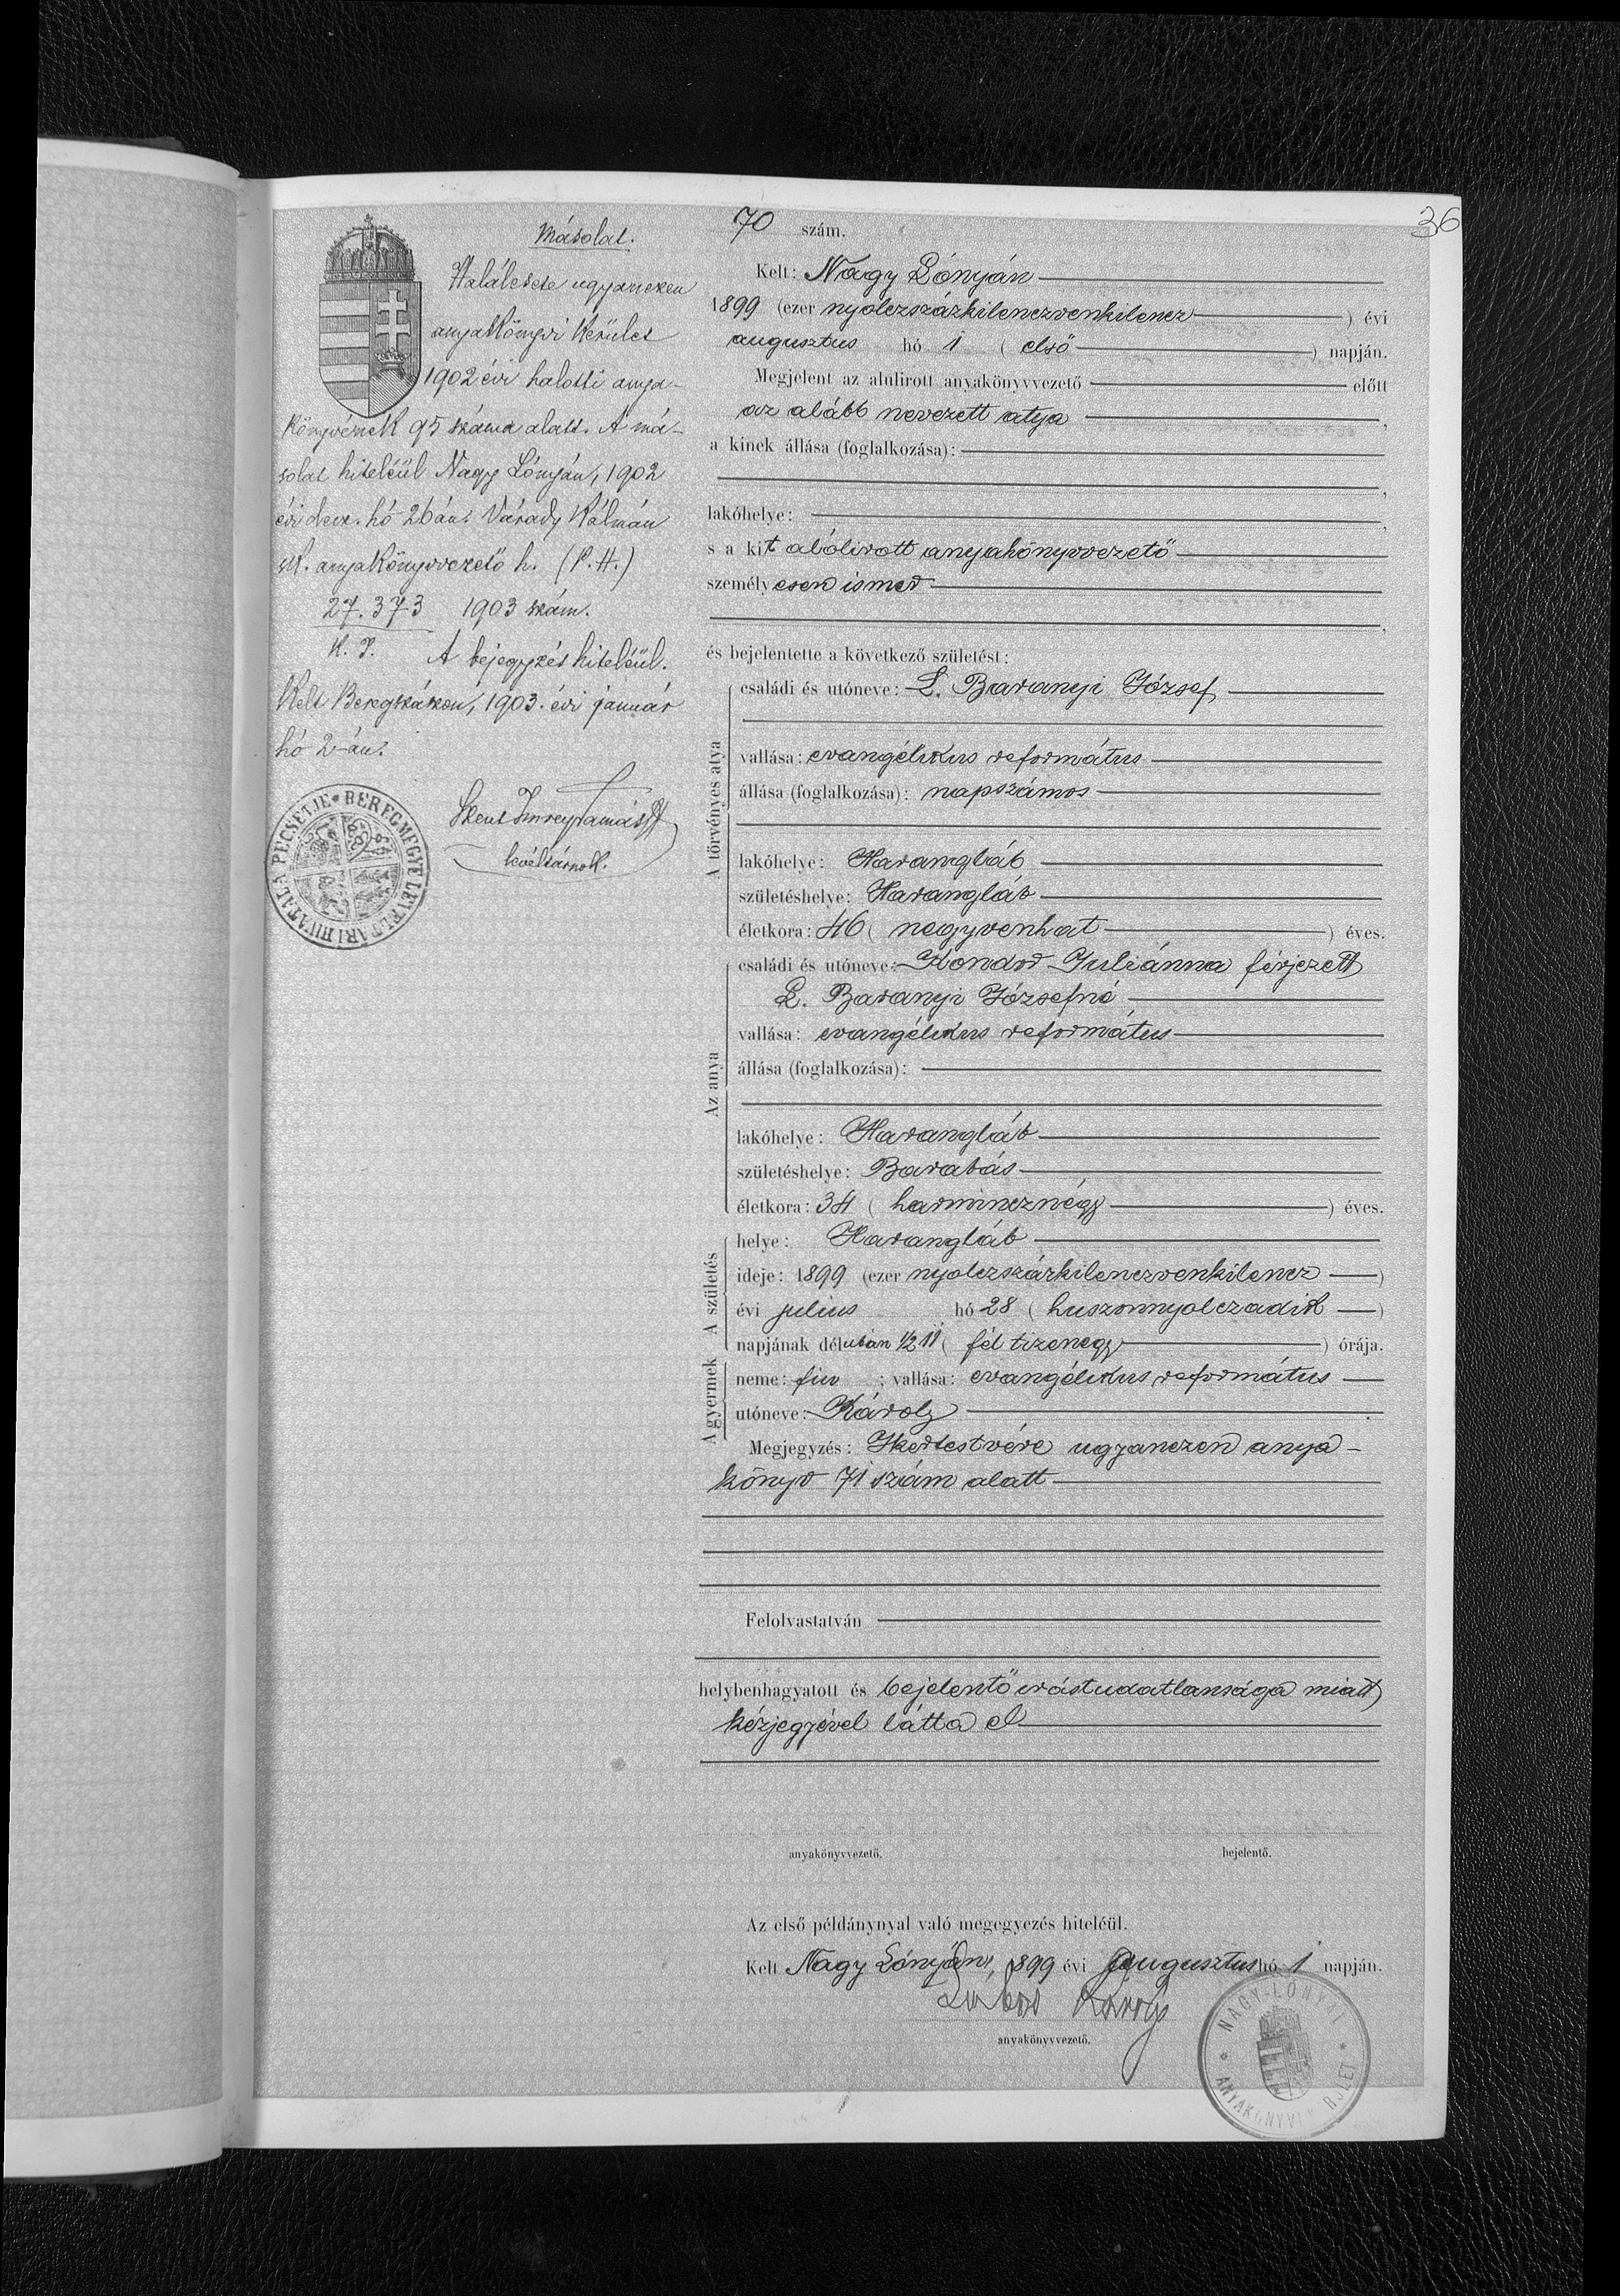 36
Másolat.
Halálesete ugyanezen
anyakönyvi kerület
1902 évi halotti anya-
könyvének 95 száma alatt. A má-
solat hiteléül Nagy Lónyán, 1902
évi decz. hó 26 án. Várady Kálmán
sk. anyakönyvvezető h. (P. H.)
27.373 1903 szám.
A bejegyzés hiteléül.
Kelt Beregszászon, 1903. évi január
hó 2-án.
levéltárnok.
BEREGMEGYE LEVÉLTÁRI HIVATALA PECSÉTJE
70 szám.
Kelt: Nagy Lónyán
1899 (ezer nyolczszázkilenczvenkilencz) évi
augusztus hó 1 (első) napján.
Megjelent az alulirott anyakönyvvezető előtt
az alább nevezett atya,
a kinek állása (foglalkozása):
,
lakóhelye: ,
s a kit alólirott anyakönyvvezető
személyesen ismer
,
és bejelentette a következő születést:
A törvényes atya
családi és utóneve: L. Baranyi József
vallása: evangélikus református
állása (foglalkozása): napszámos
lakóhelye: Harangláb
születéshelye: Harangláb
életkora: 46 (negyvenhat) éves.
Az anya
családi és utóneve: Kondor Juliánna férjezett
L. Baranyi Józsefné
vallása: evangélikus református
állása (foglalkozása):
lakóhelye: Harangláb
születéshelye: Barabás
életkora: 34 (harmincznégy) éves.
A születés
helye: Harangláb
ideje: 1899 (ezer nyolczszázkilenczvenkilencz)
évi julius hó 28 (huszonnyolczadik)
napjának délután ½ 11 (fél tizenegy) órája.
A gyermek
neme: fiu; vallása: evangélikus református
utóneve: Károly
Megjegyzés: Ikertestvére ugyanezen anya-
könyv 71 szám alatt
Felolvastatván
helybenhagyatott és bejelentő irástudatlansága miatt
kézjegyével látta el
anyakönyvvezető. bejelentő.
Az első példánynyal való megegyezés hiteléül.
Kelt Nagy Lónyán, 1899 évi augusztus hó 1 napján.
Károly
anyakönyvvezető.
NAGY-LÓNYAI ANYAKÖNYVI KERÜLET